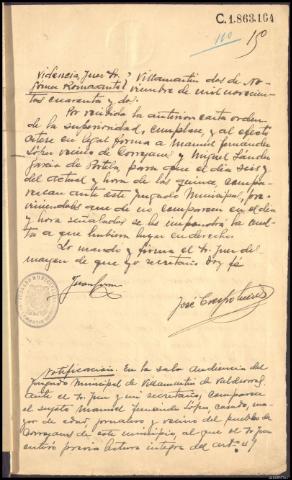 C.1.863.164
110 150
Providencia, Juez Sr. } Villamartín dos de No-
Gómez Romasanta } viembre de mil novecien-
tos cuarenta y dos.
Por recibida la anterior carta orden
de la superioridad, cúmplase, y al efecto
cítese en legal forma a Manuel Fernández
López vecino de Correjanes y Miguel
García de Portela, para que el día seis
del actual y hora de las quince, compa-
rezcan ante este Juzgado Municipal, pre-
viniéndoles que de no comparecer en el día
y hora señalados se les impondrá la mul-
ta a que hubiere lugar en derecho.
Lo mando y firma el Sr. Juez del
margen de que yo secretario doy fé
José Crespo
Notificación. En la sala Audiencia del
Juzgado Municipal de Villamartín de Valdeorras
ante el Sr. Juez y mi secretario, comparece
el sujeto Manuel Fernández López, casado, ma-
yor de edad jornalero y vecino del pueblo de
Correjanes de este municipio, al que el Sr. Juez
enteró previa lectura integra del art.